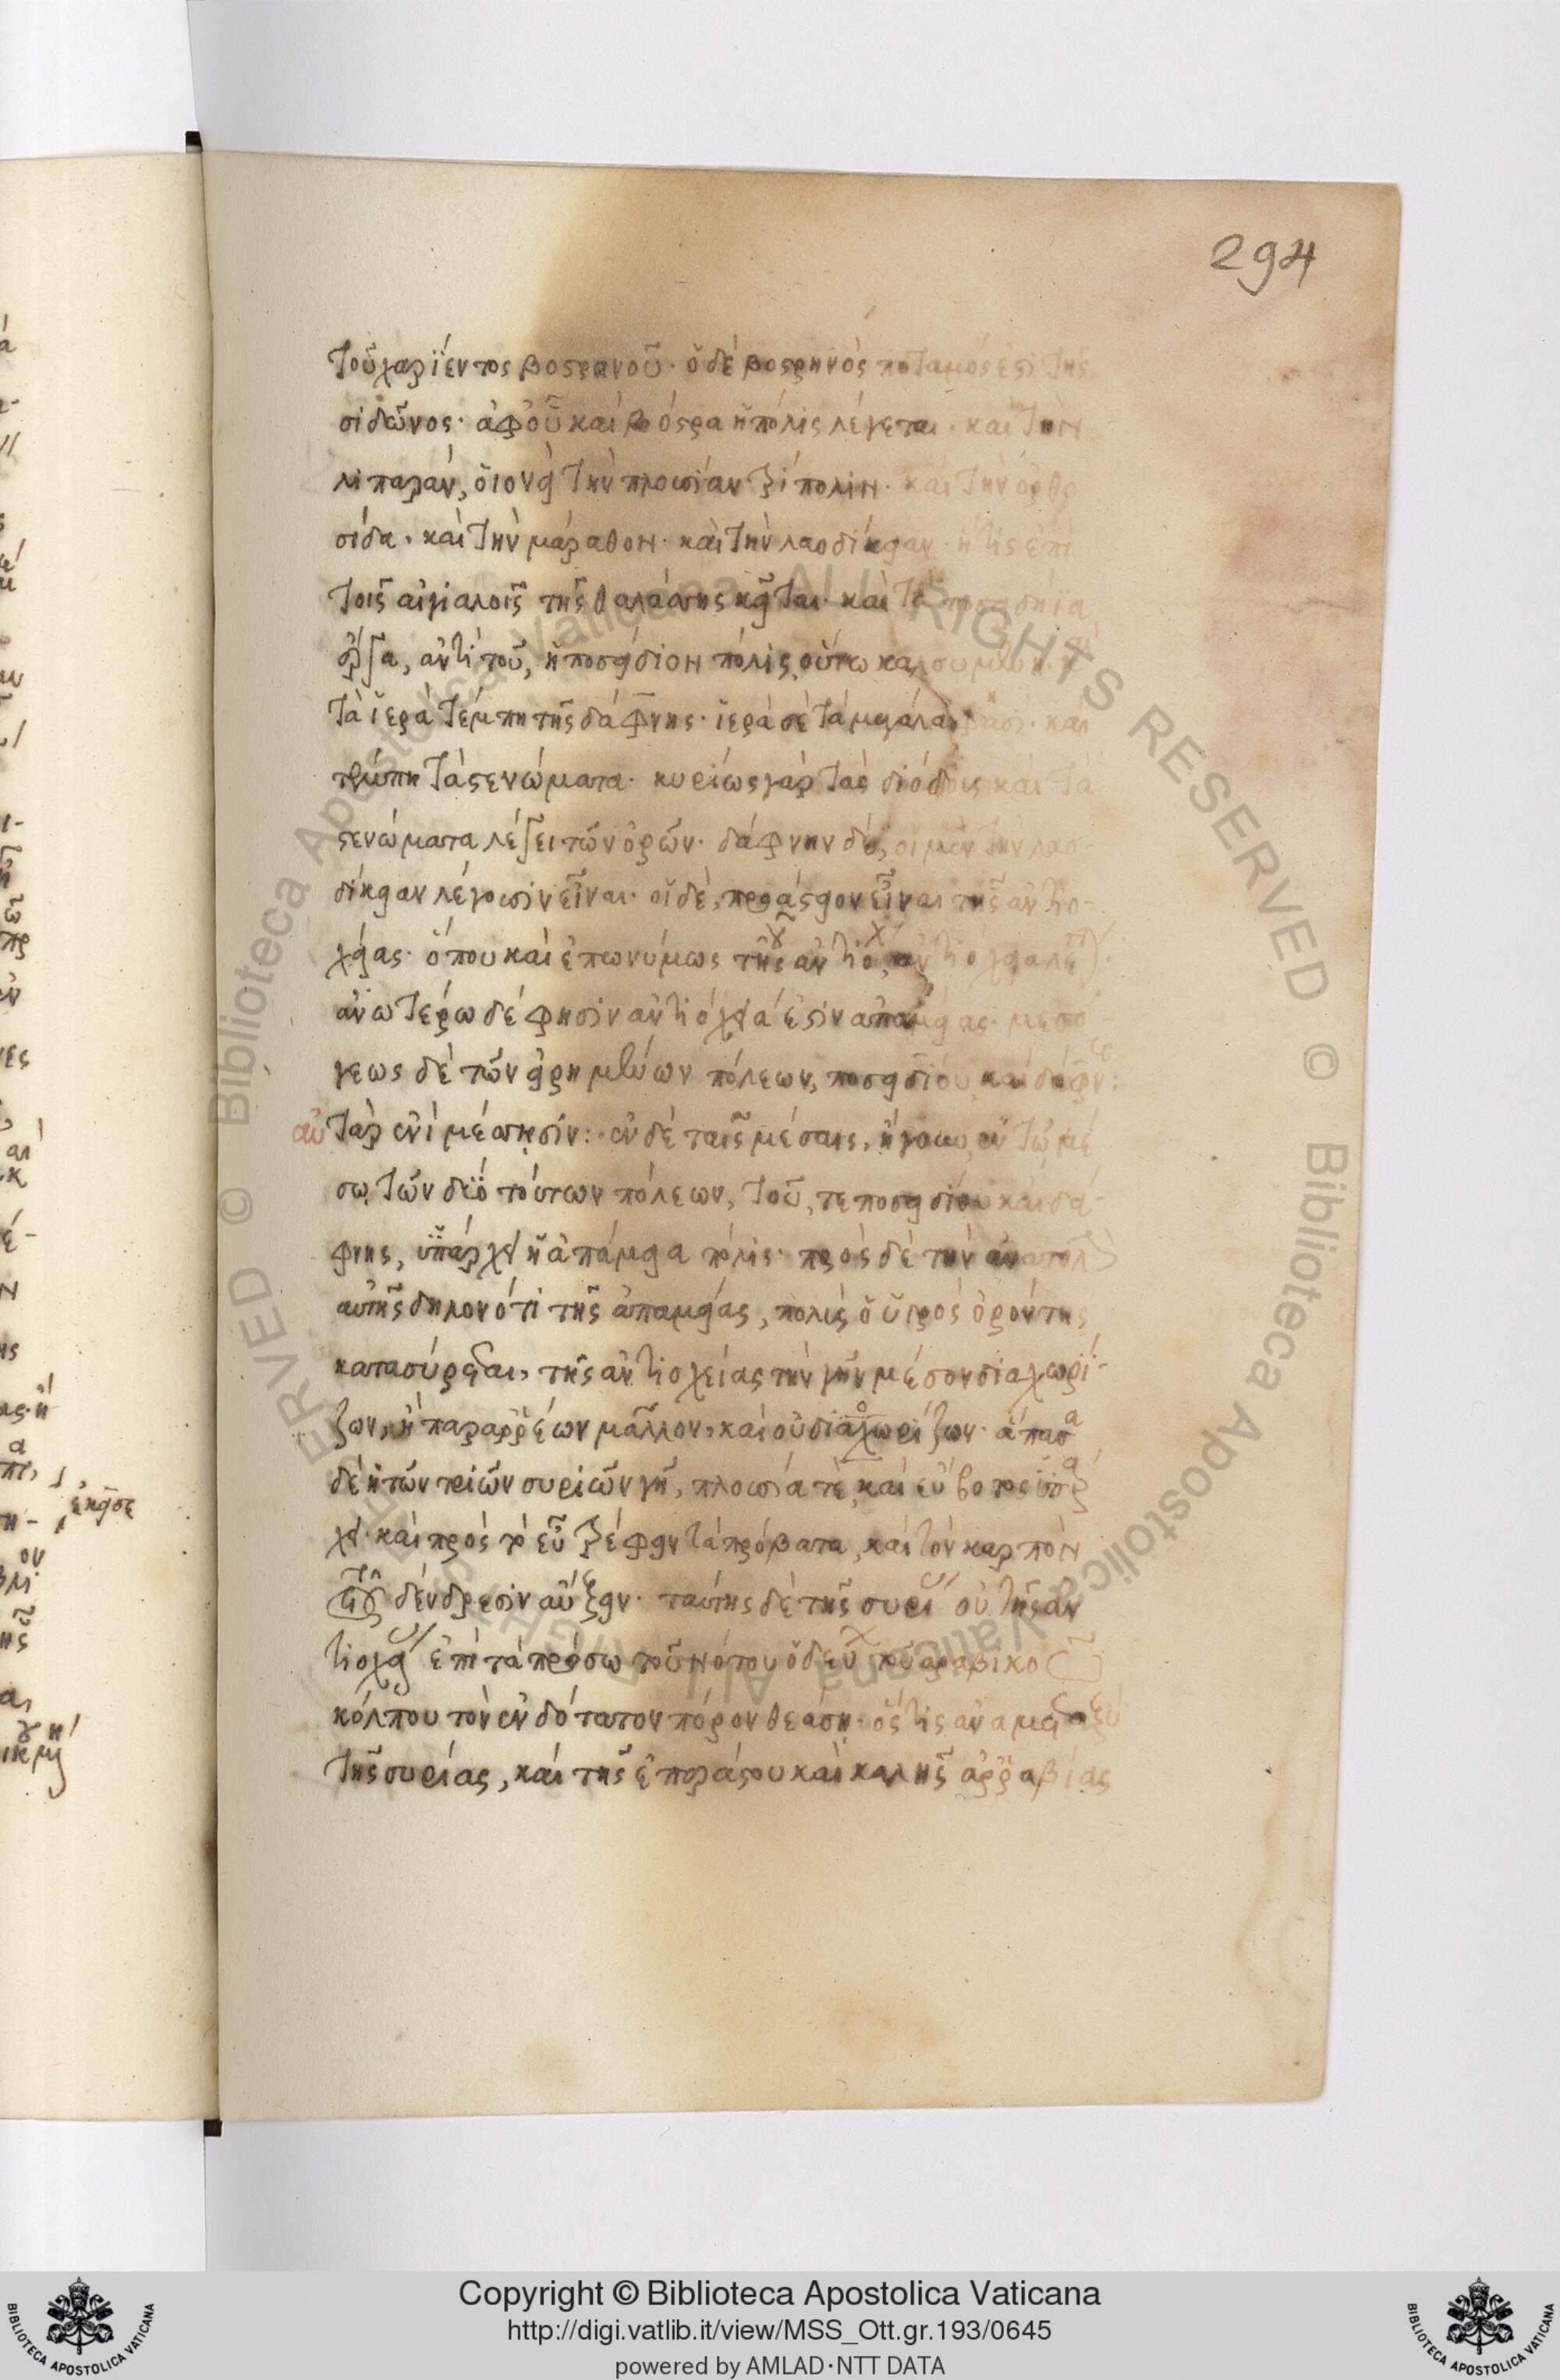 294
τοῦ χαρίεντος βοστρηνοῦ· ὁ δὲ βοστρηνὸς ποταμός ἐστι τῆς
σιδῶνος· ἀφ' οὗ καὶ βόστρα ἡ πόλις λέγεται· καὶ τὴν
λιπαρὰν, οἱονεὶ τὴν πλουσίαν τρίπολιν· καὶ τὴν ὀρθω
σίδα· καὶ τὴν μάραθον· καὶ τὴν λαοδίκειαν· ἥτις ἐπὶ
τοῖς αἰγιαλοῖς τῆς θαλάσσης κεῖται· καὶ τὰ ποσιδήϊα
ἔργα, ἀντὶ τοῦ, ἡ ποσείδιον πόλις οὕτω καλουμένη·
τὰ ἱερὰ τέμπη τῆς δάφνης· ἱερὰ δὲ τὰ μεγάλα φασί· καὶ
τέμπη τὰ στενώματα· κυρίως γὰρ τὰς διόδους καὶ τὰ
στενώματα λέξει τῶν ὀρῶν· δάφνην δὲ, οἱ μὲν τὴν λαο-
δίκειαν λέγουσιν εἶναι· οἱ δὲ, προάστειον εἶναι τῆς ἀντιο-
χείας· ὅπου καὶ ἐπωνύμως τῆς ἀντιόχου
ἀνωτέρω δέ φησιν ἀντιόχεια ἐστὶν ἀπαμείας· μεσό-
γεως δὲ τῶν εἰρημένων πόλεων, ποσειδίου καὶ δάφν:
αὐτὰρ ἐνὶ μέσσῃσιν: ἐν δὲ ταῖς μέσαις, ἤγουν ἐν τῷ μέ
σῳ τῶν δύο τούτων πόλεων, τοῦ, τε ποσειδίου καὶ δά-
φνης, ὑπάρχει ἡ ἀπάμεια πόλις· πρὸς δὲ τὴν ἀνατολὴν
αὐτῆς δηλονότι τῆς ἀπαμείας, πόλις ὁ ὑγρὸς ὀρόντης
κατασύρεται, τῆς ἀντιοχείας τὴν γῆν μέσον διαχωρί-
ζων, ἢ παραρρέων μᾶλλον, καὶ οὐ διαχωρίζων· ἅπασα
δὲ ἡ τῶν τριῶν συριῶν γῆ, πλουσία τὲ, καὶ εὔβοτος ὑπάρ
χει· καὶ πρὸς τὸ εὖ τρέφειν τὰ πρόβατα, καὶ τὸν καρπὸν
τοῖς δένδρεσιν αὔξειν· ταύτης δὲ τῆς συρίας οὐ τῆς ἀν
τιοχείας ἐπὶ τὰ πρόσω τοῦ νότου ὁδεύων τοῦ ἀραβικοῦ
κόλπου τὸν ἐνδότατον πόρον θεάσῃ· ὅστις ἀναμεταξὺ
τῆς συρίας, καὶ τῆς ἐπεράστου καὶ καλῆς ἀρραβίας
Copyright © Biblioteca Apostolica Vaticana
http://digi.vatlib.it/view/MSS_Ott.gr.193/0645
powered by AMLAD·NTT DATA